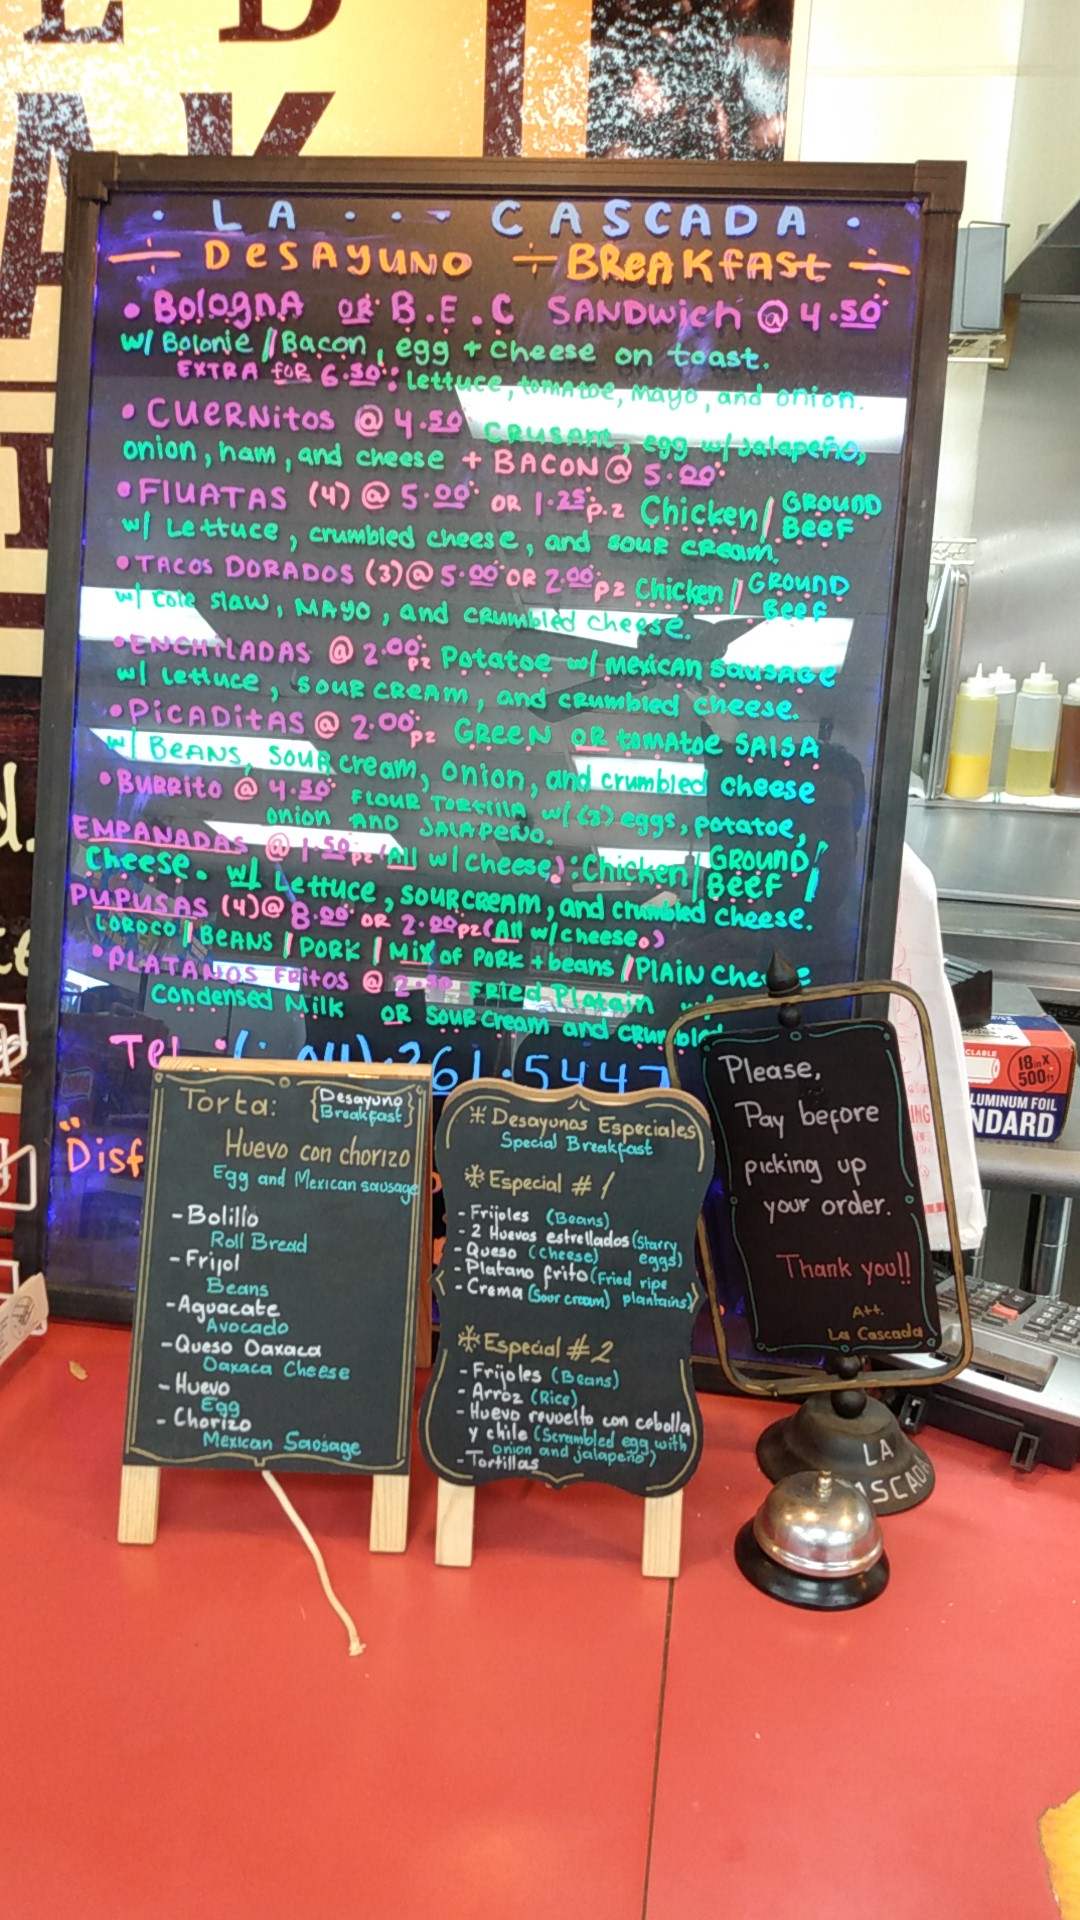 LA CASCADA
DESAYUNO ÷ BREAKfASt
• Bologna OR B.E.C SANDWich @ 4.50
w/ Bolonie / Bacon, egg + cheese on toast.
EXTRA fOR 6.50: Lettuce, tomatoe, Mayo, and onion.
• CUERNitOS @ 4.50 CRUSANt, egg w/ Jalapeño,
onion, ham, and cheese + BACON @ 5.00
• FlUATAS (4) @ 5.00 OR 1.25 p.z Chicken/ GROUND BEEF
w/ Lettuce, crumbled cheese, and sour cream.
• TACOS DORADOS (3) @ 5.00 OR 2.00 pz Chicken / GROUND BEEF
w/ Cole slaw, MAYO, and crumbled cheese.
• ENCHILADAS @ 2.00 pz Potatoe w/ Mexican SAUSAGE
w/ Lettuce, SOUR CREAM, and crumbled cheese.
• PiCADitAS @ 2.00 pz GREEN OR tomatoe SAlSA
w/ BEANS, SOUR cream, onion, and crumbled cheese
• BURRito @ 4.50 FLOUR TORtillA w/ (2) eggs, potatoe,
onion AND JALAPEÑO.
EMPANADAS @ 1.50 pz (All w/ cheese): Chicken/ GROUND BEEF /
Cheese. w/ Lettuce, sour cream, and crumbled cheese.
PUPUSAS (4) @ 8.00 OR 2.00 pz (All w/ cheese.)
LOROCO / BEANS / PORK / Mix of PORK + beans / PlAiN Cheese
• PLATANOS FRitOS @ 2.50 FRied Platain w/
Condensed Milk OR Sour cream and crumbled
Tel 61.5447
"Disf
Torta: {Desayuno
Breakfast}
Huevo con chorizo
Egg and Mexican sausage
- Bolillo
Roll Bread
- Frijol
Beans
- Aguacate
Avocado
- Queso Oaxaca
Oaxaca Cheese
- Huevo
Egg
- Chorizo
Mexican Saosage
* Desayunos Especiales
Special Breakfast
* Especial #1
- Frijoles (Beans)
- 2 Huevos estrellados (Starry
eggs)
- Queso (Cheese)
- Platano frito (Fried ripe
plantains)
- Crema (Sour cream)
* Especial #2
- Frijoles (Beans)
- Arroz (Rice)
- Huevo revuelto con cebolla
y chile (Scrambled egg with
onion and jalapeño)
- Tortillas
Please,
Pay before
picking up
your order.
Thank you!!
Att.
La Cascada
LA
CASCADA
18in x
500ft
ALUMINUM FOIL